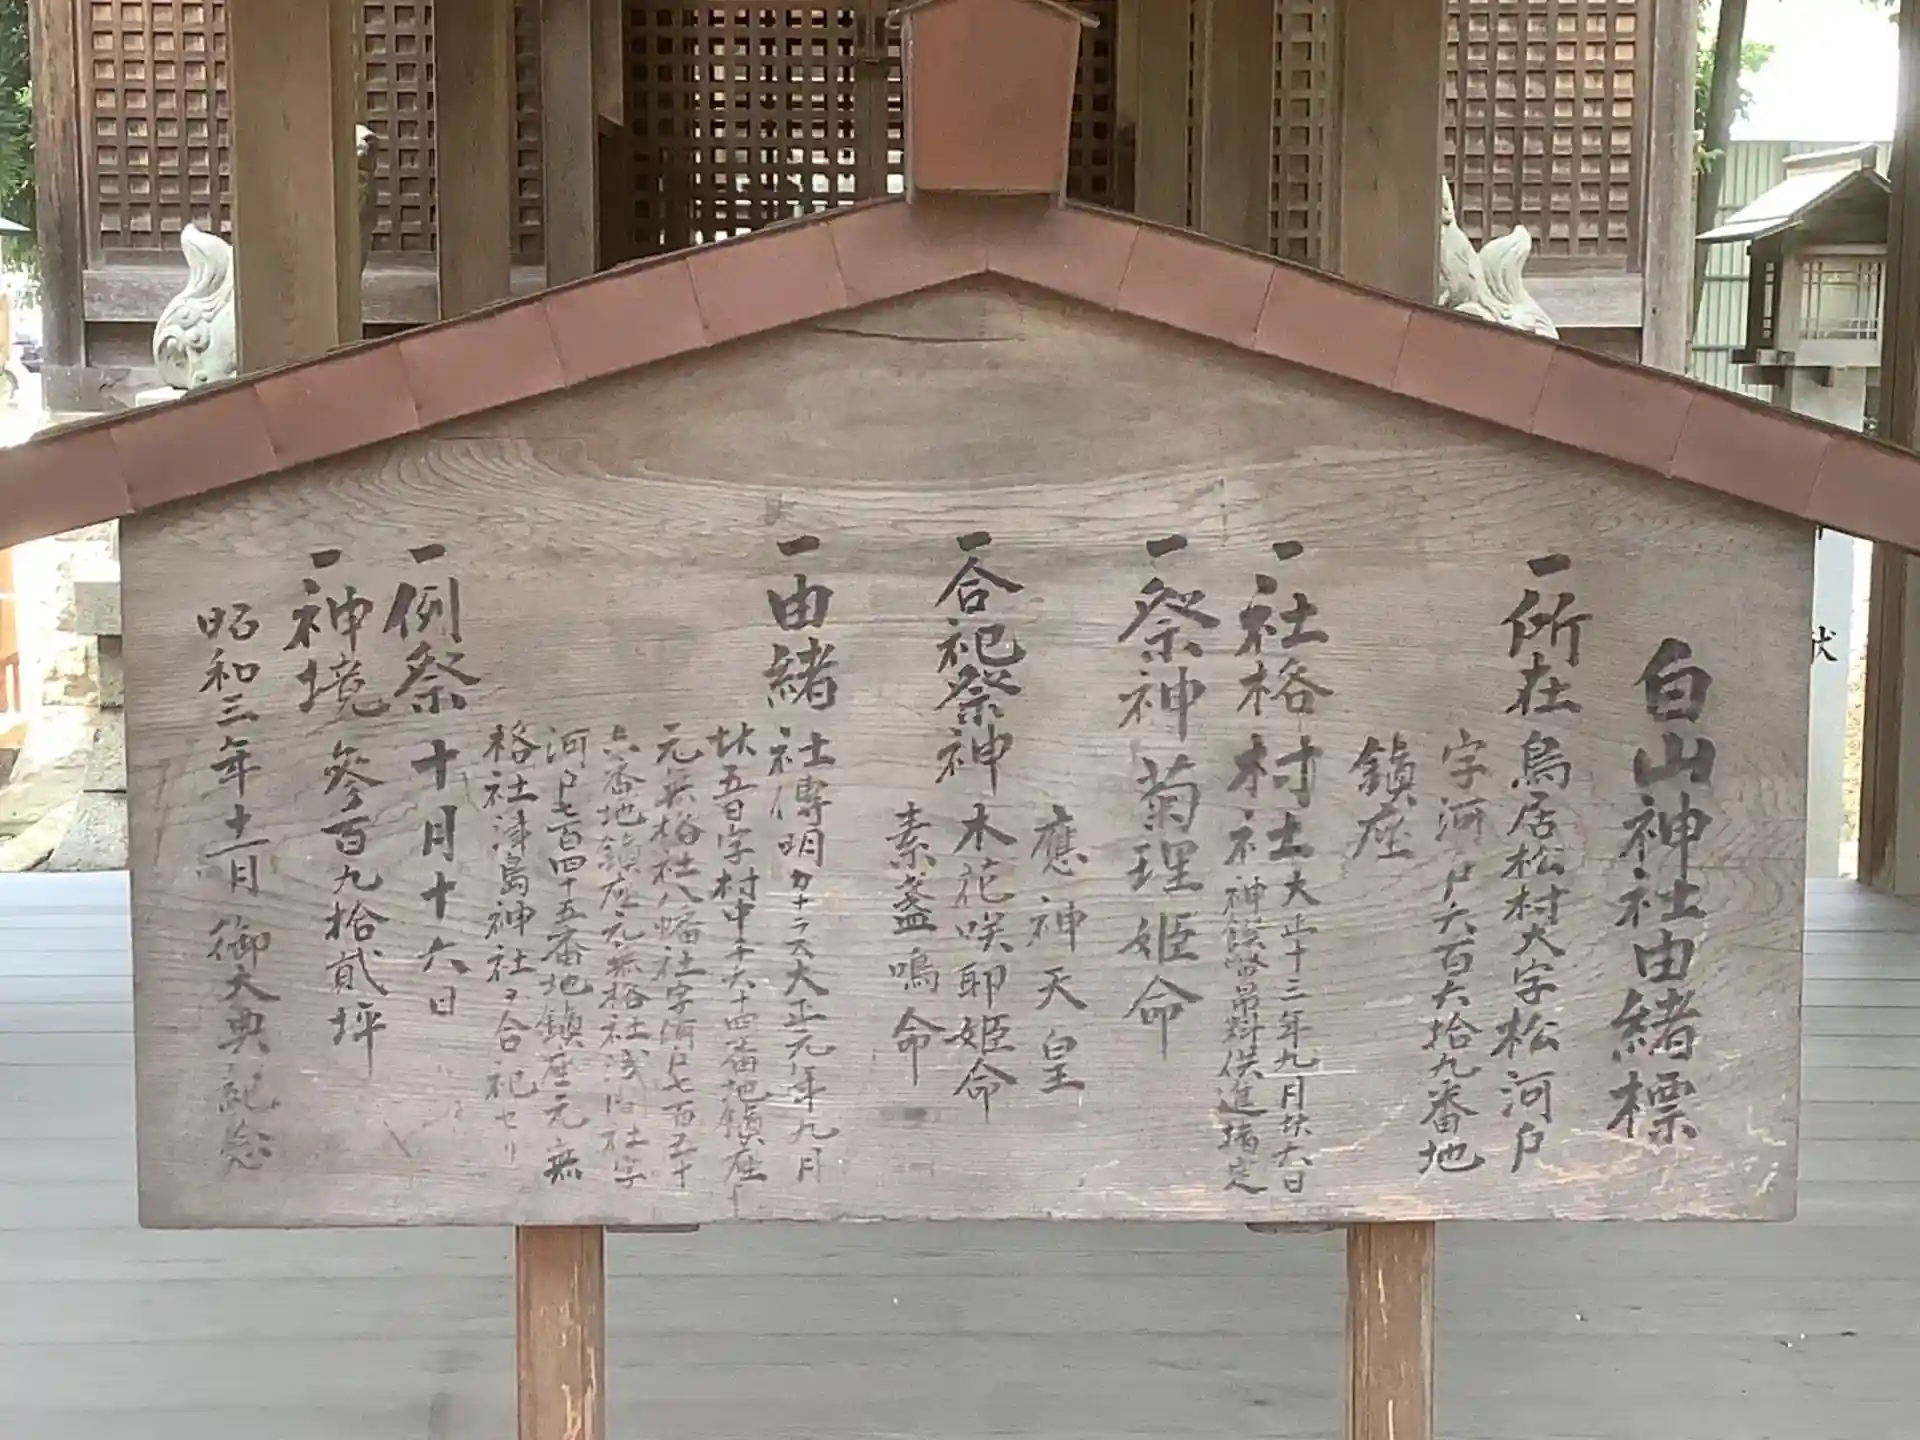 白山神社由緒標
一所在 鳥居松村大字松河戸
字河戸六百六拾九番地
鎮座
一社格村社 大正十三年九月廿六日
神饌幣帛料供進指定
一祭神 菊理姫命
應神天皇
一合祀祭神 木花咲耶姫命
素盞嗚命
一由緒 社傳明カナラス大正元年九月
廿五日字村中千六十四番地鎮座
元無格社八幡社字河戸七百五十
六番地鎮座元無格社浅間社字
河戸七百四十五番地鎮座元無
格社津島神社ヲ合祀セリ
一例祭 十月十六日
一神境 參百九拾貳坪
昭和三年十一月 御大典紀念